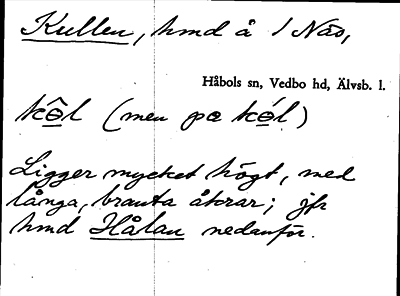 Kullen, hmd å 1 Näs,
Håbols sn, Vedbo hd, Älvsb. l.
(men på
Ligger mycket högt, med
långa, branta åkrar; jfr
hmd Hålan nedanför.